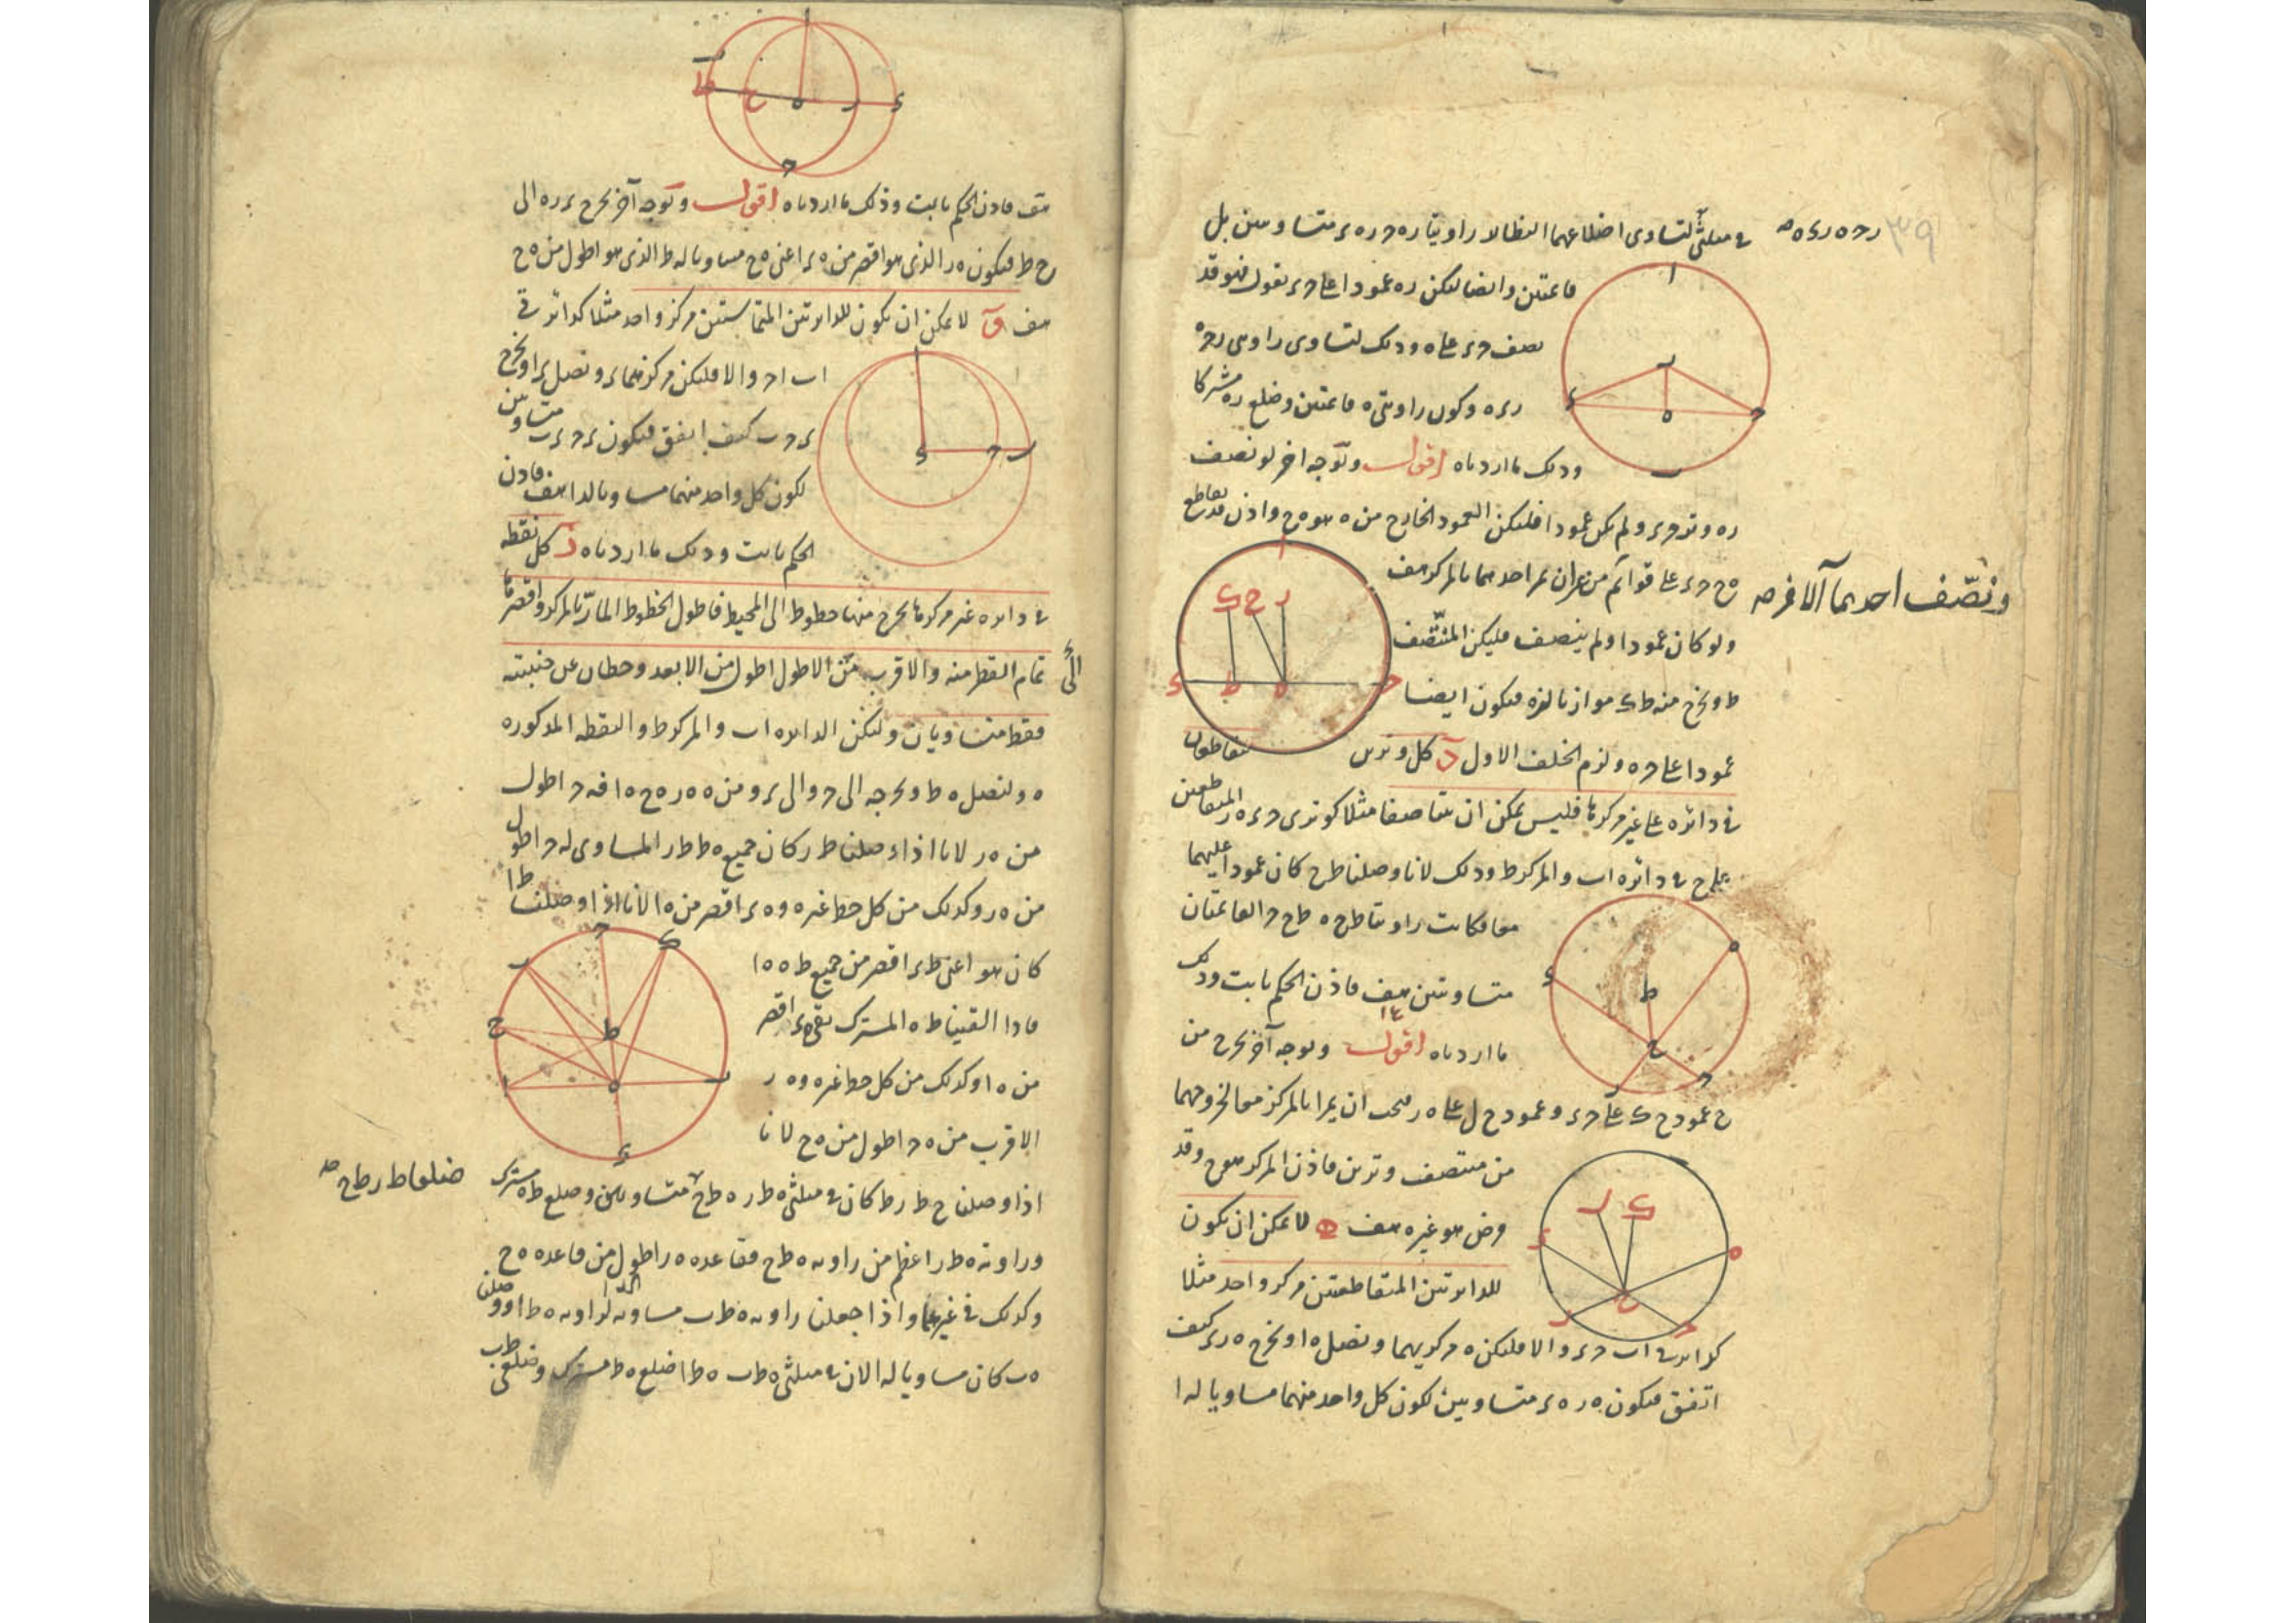 في مثلثي لتساوى اضلاعهما النظائر زاويتا ره ح ره ء متساويتين بل
ر ح ه ر ء ه صح
٣٩
قائمتين وايضا ليكن ره عمودا على ح ء نقول فهو قد
نصف ح ء على ه وذلك لتساوى زاويتى ر ح ه
ر ء ه وكون زاويتى ه قائمتين وضلع ره مشتركا
وذلك ما اردناه اقول وبوجه اخر لو نصف
ره وتر ح ء ولم يكن عمودا فليكن العمود الخارج من ه هو ه ح واذن تقاطع
ه ح ح ء على قوائم من غير ان يمر احدهما بالمركز هف
ونصف احديهما الاخر صح
ولو كان عمودا ولم ينصف فليكن المنتصف
ط ونخرج منه ط ك موازيا لره فيكون ايضا
عمودا على ح ء ولزم الخلف الاول د كل وترين يتقاطعان
في دائره على غير مركزها فليس يمكن ان يتناصفا مثلا كوترى ح ء ه ر المتقاطعين
على ح في دائره اب والمركز ط وذلك لانا وصلنا ط ح كان عمودا عليهما
معا فكانت زاويتا ط ح ه ط ح ح القائمتان
متساويتين هف فاذن الحكم ثابت وذلك
ما اردناه اقول وبوجه آخر نخرج من
ح عمود ح ك على ح ء وعمود ح ل على ه ر فيجب ان يمرا بالمركز معا لخروجهما
من منتصف وترين فاذن المركز هو ح وقد
فرض هو غيره هف ه لا يمكن ان يكون
للدائرتين المتقاطعتين مركز واحد مثلا
كدائرتى اب ح ء والا فليكن ه مركزيهما ونصل ه ا ونخرج ه ر ء كيف
اتفق فيكون ه ر ه ء متساويين لكون كل واحد منهما مساويا له ا
هف فاذن الحكم ثابت وذلك ما اردناه اقول وبوجه آخر نخرج ء ر ه الى
ح ط فيكون ه ر الذى هو اقصر من ه ء اعنى ه ح مساويا له ط الذى هو اطول من ه ح
هف و لا يمكن ان يكون للدائرتين المتماستين مركز واحد مثلا كدائرتى
اب اح والا فليكن مركزهما ء ونصل ء ا ونخرج
ء ح ب كيف اتفق فيكون ء ح ء ب متساويين
لكون كل واحد منهما مساويا لء ا هف فاذن
الحكم ثابت وذلك ما اردناه ز كل نقطه
في دائره غير مركزها نخرج منها خطوط الى المحيط فاطول الخطوط المار بالمركز واقصرها
تمام القطر منه والاقرب من الاطول اطول من الابعد وخطان عن جنبيته
فقط متساويان وليكن الدائره اب والمركز ط والنقطه المذكوره
ه ولنصل ه ط ونخرجه الى ح والى ء ومن ه ه ر ه ح ه ا فه ح اطول
من ه ر لانا اذا وصلنا ط ر كان جميع ه ط ط ر المساوى له ح اطول
من ه ر وكذلك من كل خط غيره وه ء اقصر من ه ا لانا اذا وصلنا ط ا
كان هو اعنى ط ء اقصر من جميع ط ه ه ا
فاذا القينا ط ه المشترك بقى ه ء اقصر
من ه ا وكذلك من كل خط غيره وه ر
الاقرب من ه ح اطول من ه ح لانا
اذا وصلنا ح ط ر ط كان في مثلثى ه ط ر ه ط ح متساويين وضلع ط ه مشترك
ضلعا ط ر ط ح صح
وزاويه ه ط ر اعظم من زاويه ه ط ح فقاعده ه ر اطول من قاعده ه ح
وكذلك في غيرهما واذا جعلنا زاويه ه ط ب مساويه لزاويه ه ط ا ووصلنا
ه ب كان مساويا له ا لان في مثلثى ه ط ب ه ط ا ضلع ه ط مشترك وضلعى ط ب